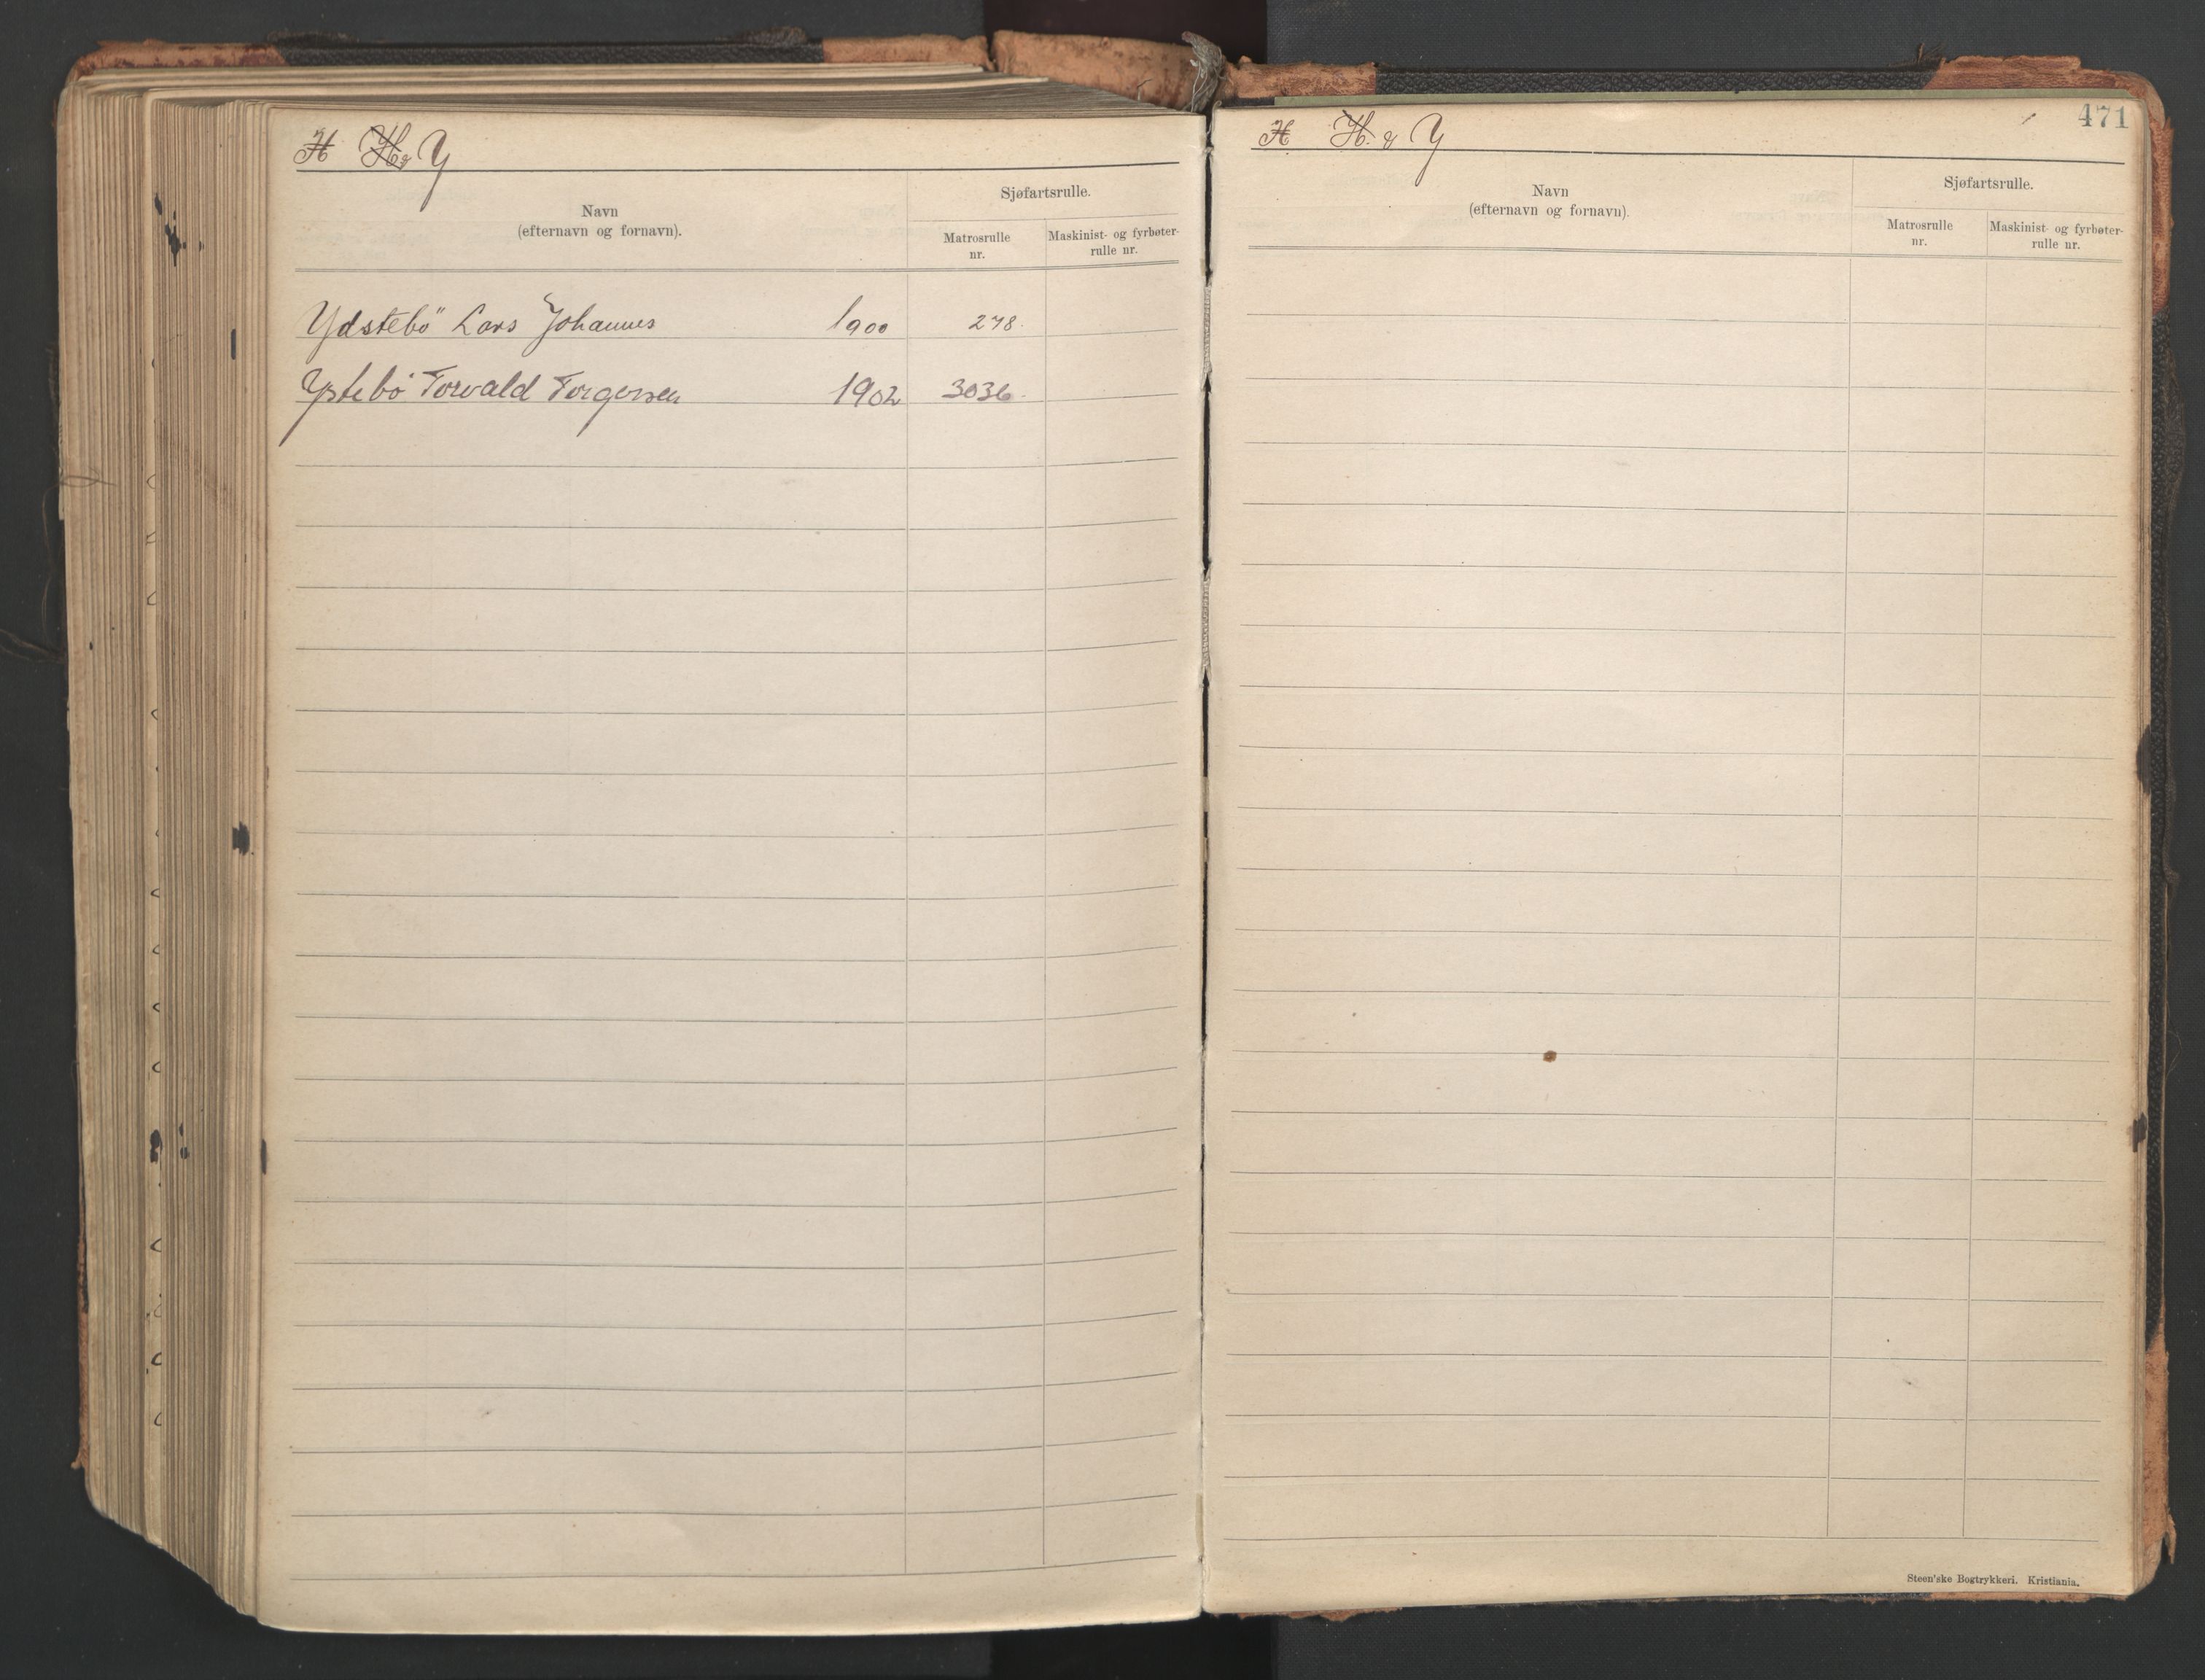 H H & Y
Navn
(efternavn og fornavn).
Sjøfartsrulle.
Matrosrulle
nr.
Maskinist- og fyrbøter-
rulle nr.
Ydstebö Lars Johannes 1900 278.
Ystebö Torvald Torgersen 1902 3036.
471
H H. & Y
Navn
(efternavn og fornavn).
Sjøfartsrulle.
Matrosrulle
nr.
Maskinist- og fyrbøter-
rulle nr.
Steen'ske Bogtrykkeri. Kristiania.